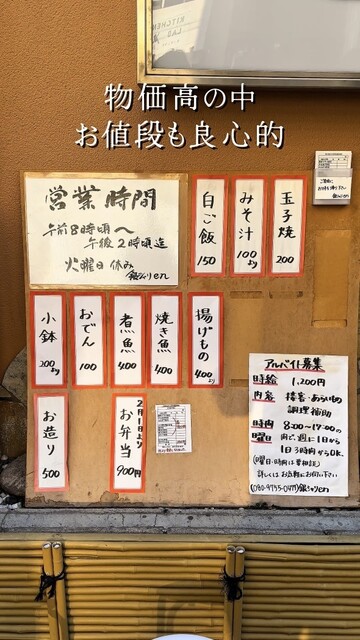 物価高の中
お値段も良心的
営業時間
午前8時頃〜
午後2時頃迄
火曜日休み
銀シャリen
白ご飯
150
みそ汁
100より
玉子焼
200
小鉢
200より
おでん
100
煮魚
400
焼き魚
400
揚げもの
400より
お造り
500
2月1日より
お弁当
900円
アルバイト募集
時給 1,200円
内容 接客・あらいもの
調理補助
時間 8:00〜17:00の
曜日 内で、週に1日から
1日3時間からOK.
(曜日・時間は要相談)
詳しくはお気軽にお問い下さい
銀シャリen